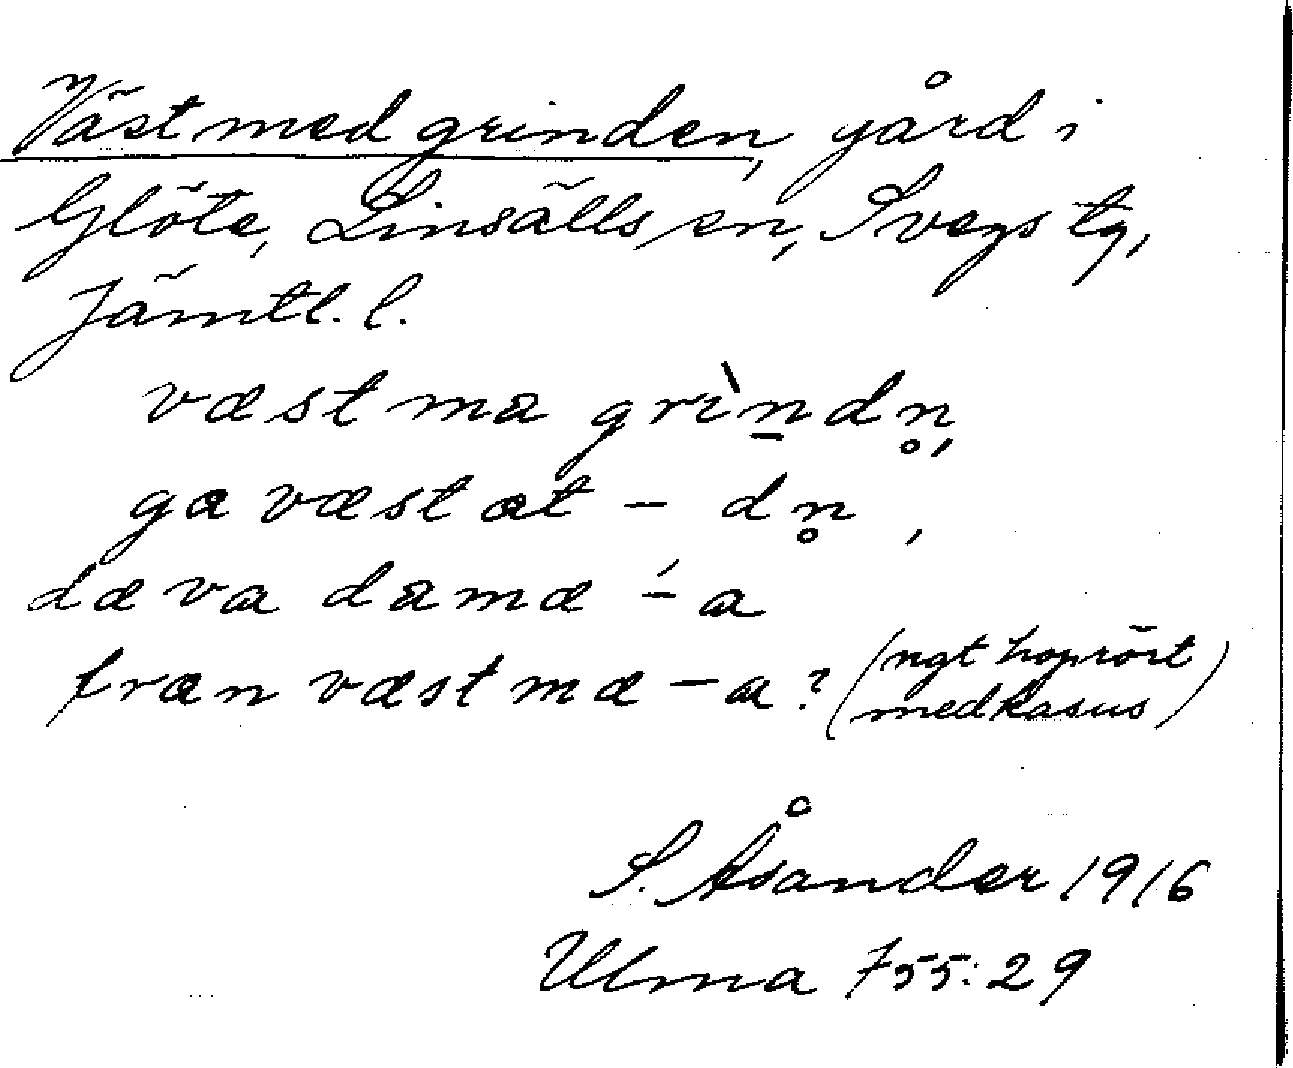 Västmedgrinden, gård i
Glöte, Linsälls sn, Svegs tg,
Jämtl. l.
væst ma grìn̠dn̥,
ga væst at – dn̥ ,
dæ va damæ –́ a
fræn væst mæ – a? (ngt hoprört
medkasus)
S. Åsander 1916
Ulma 755:29